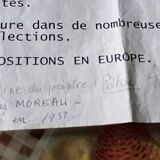 tes.
ure dans de nombreuse
llections.
POSITIONS EN EUROPE.
ine du peintre
es MOREAU -
é en 1932